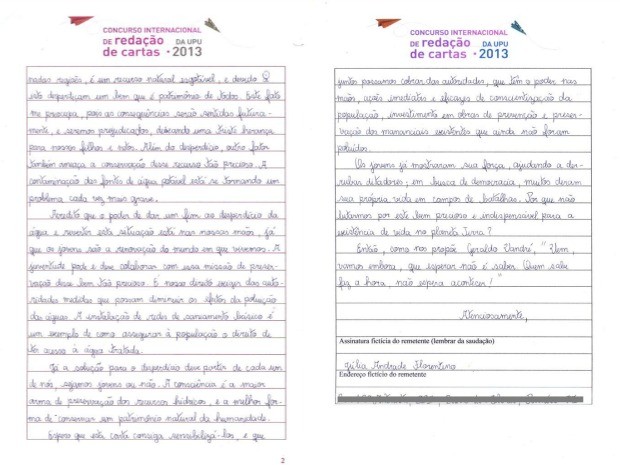 CONCURSO INTERNACIONAL
DE redação DA UPU
de cartas • 2013
nadas regiões, é um recurso natural esgotável, e devido
isto desperdiçam um bem que é patrimônio de todos. Este fato
me preocupa, pois as consequências serão sentidas futura-
mente, e seremos prejudicados, deixando uma triste herança
para nossos filhos e netos. Além do desperdício, outro fator
também ameaça a conservação desse recurso tão precioso. A
contaminação das fontes de água potável está se tornando um
problema cada vez mais grave.
Acredito que o poder de dar um fim ao desperdício da
água e reverter esta situação está nas nossas mãos, já
que os jovens são a renovação do mundo em que vivemos. A
juventude pode e deve colaborar com essa missão de preser-
vação desse bem tão precioso. É nosso direito exigir das auto-
ridades medidas que possam diminuir os efeitos da poluição
das águas. A instalação de rede de saneamento básico é
um exemplo de como assegurar à população o direito de
ter acesso à água tratada.
Já a solução para o desperdício deve partir de cada um
de nós, sejamos jovens ou não. A consciência é a maior
arma de preservação dos recursos hídricos, e a melhor for-
ma de conservar um patrimônio natural da humanidade.
Espero que esta carta consiga sensibilizá-los, e que
2
CONCURSO INTERNACIONAL
DE redação DA UPU
de cartas • 2013
juntos possamos cobrar das autoridades, que têm o poder nas
mãos, ações imediatas e eficazes de conscientização da
população, investimento em obras de prevenção e preser-
vação dos mananciais existentes que ainda não foram
poluídos.
Os jovens já mostraram sua força, ajudando a der-
rubar ditadores; em busca de democracia, muitos deram
sua própria vida em campos de batalhas. Por que não
lutarmos por este bem precioso e indispensável para a
existência de vida no planeta Terra?
Então, como nos propõe Geraldo Vandré, "Vem,
vamos embora, que esperar não é saber. Quem sabe
faz a hora, não espera acontecer!"
Atenciosamente,
Assinatura fictícia do remetente (lembrar da saudação)
Júlia Andrade Florentino
Endereço fictício do remetente